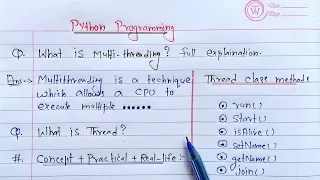 Python Programming
Q. What is Multi-threading? full explaination.
Ans:- Multithreading is a technique
which allows a CPU to
execute multiple ......
Q. What is Thread?
#. Concept + Practical + Real-life :-
Thread class methods
run()
start()
isAlive()
setName()
getName()
join()